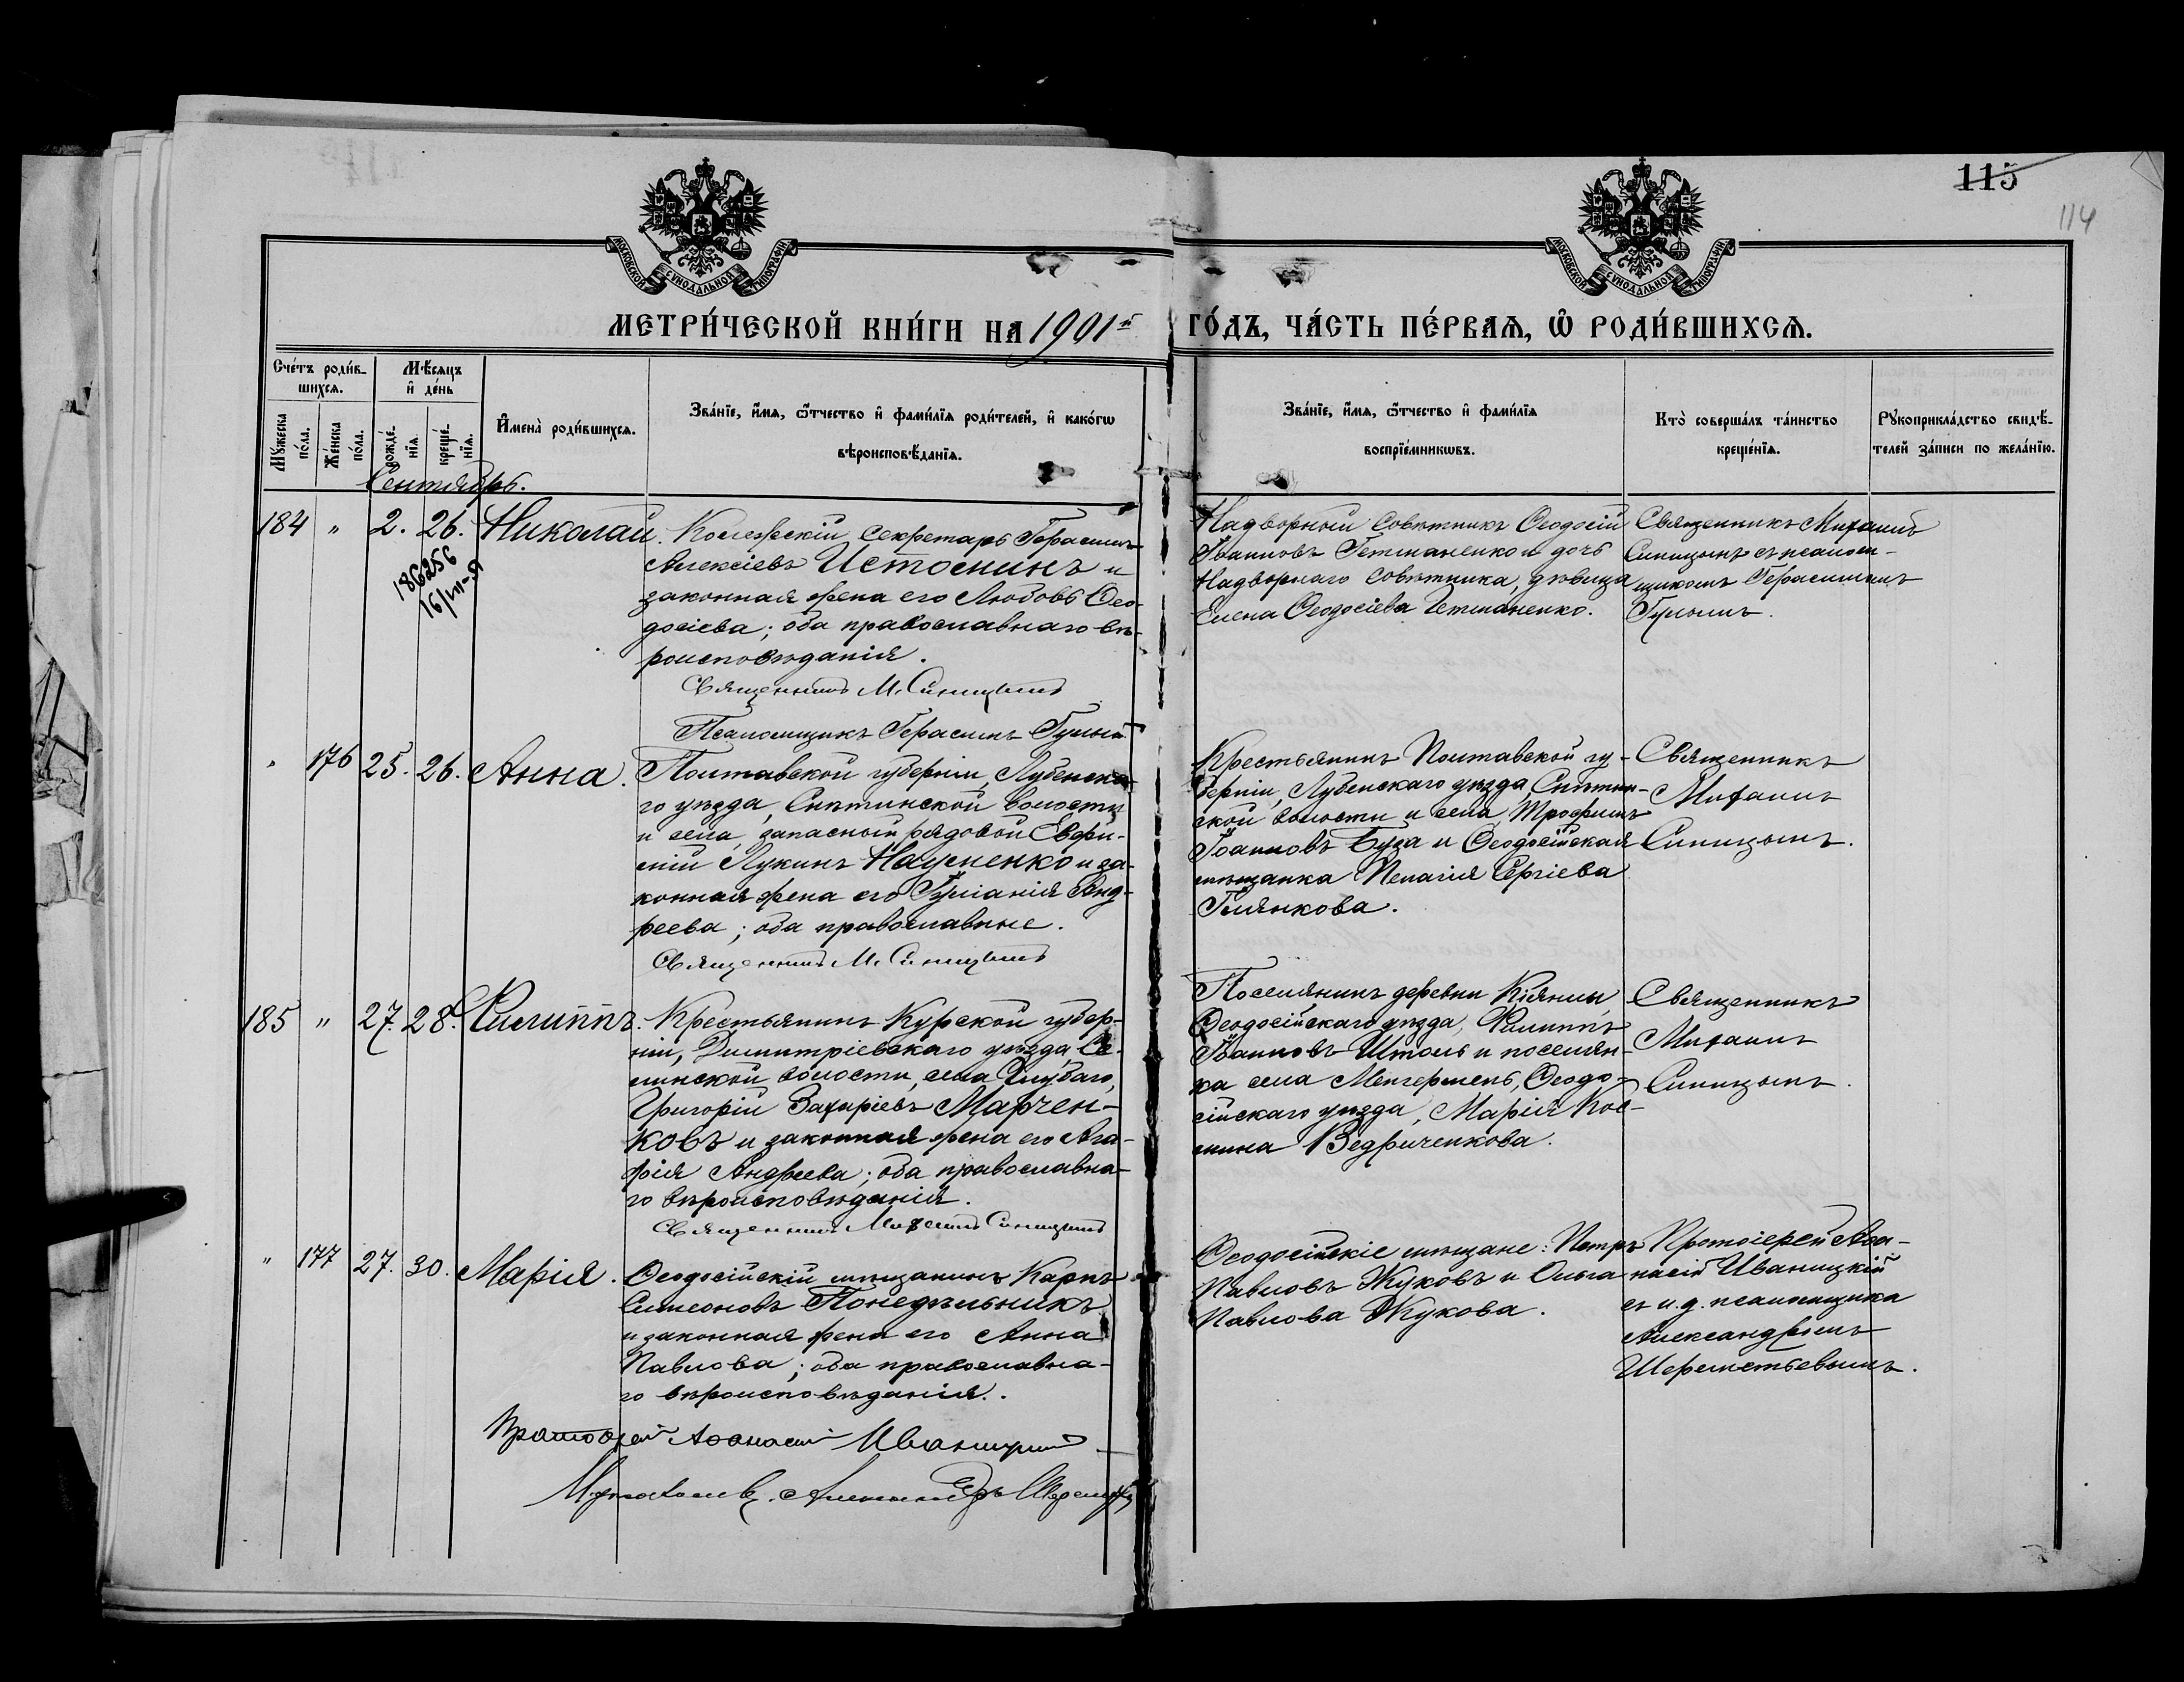 115
114
МОСКОВСКОЙ СѴНОДАЛЬНОЙ ТИПОГРАФІИ
МОСКОВСКОЙ СѴНОДАЛЬНОЙ ТИПОГРАФІИ
МЕТРИ́ЧЕСКОЙ КНИ́ГИ НА 1901й ГО́ДЪ, ЧА́СТЬ ПЕ́РВАѦ, Ѡ РОДИ́ВШИХСѦ.
Сче́тъ роди́в-
шихсѧ.
Мѣ́сѧцъ
и҆ де́нь
Мꙋ́жеска по́ла.
Же́нска по́ла.
рожде́-
нїѧ.
креще́-
нїѧ.
И҆мена̀ роди́вшихсѧ.
Зва́нїе, и҆́мѧ, ѻ҆́тчество и҆ фами́лїѧ роди́телей, и҆ како́гѡ
вѣроисповѣ́данїѧ.
Зва́нїе, и҆́мѧ, ѻ҆́тчество и҆ фами́лїѧ
воспрїе́мникѡвъ.
Кто̀ соверша́лъ та́инство
креще́нїѧ.
Рꙋкоприкла́дство свидѣ́-
телей за́писи по жела́нїю.
Сентябрь.
184 " 2. 26. Николай.
186256
16/III-я
Коллежскій Секретарь Герасимъ
Алексіевъ Истоминъ и
законная жена его Любовь Ѳео-
досіева; оба православнаго вѣ-
роисповѣданія.
Священникъ М. Синицынъ
Псаломщикъ Герасимъ Гулый
Надворный Совѣтникъ Ѳеодосій
Іоанновъ Гетманенко и дочь
Надворнаго Совѣтника, дѣвица
Елена Ѳеодосіева Гетманенко.
Священникъ Михаилъ
Синицынъ съ псалом-
щикомъ Герасимомъ
Гулымъ.
" 176 25. 26. Анна.
Полтавской губерніи, Лубенска-
го уѣзда, Снѣтинской волости
и села, запасный рядовой Евфи-
мій Лукинъ Науменко и за-
конная жена его Іуліанія Анд-
реева; оба православные.
Священникъ М. Синицынъ
Крестьянинъ Полтавской гу-
берніи, Лубенскаго уѣзда, Снѣтин-
ской волости и села Трофимъ
Іоанновъ Буза и Ѳеодосійская
мѣщанка Пелагія Сергіева
Голянкова.
Священникъ
Михаилъ
Синицынъ.
185 " 27. 28. Филиппъ.
Крестьянинъ Курской губер-
ніи, Димитріевскаго уѣзда, Се-
линской волости, села Глубаго,
Григорій Захаріевъ Марчен-
ковъ и законная жена его Ага-
фія Андреева; оба православна-
го вѣроисповѣданія.
Священникъ Михаилъ Синицынъ
Поселянинъ деревни Кіянлы,
Ѳеодосійскаго уѣзда, Филиппъ
Іоанновъ Штоль и поселян-
ка села Менгермень, Ѳеодо-
сійскаго уѣзда, Марія Кос-
мина Ведриченкова.
Священникъ
Михаилъ
Синицынъ.
" 177 27. 30. Марія.
Ѳеодосійскій мѣщанинъ Карпъ
Симеоновъ Понедѣльникъ
и законная жена его Анна
Павлова; оба православна-
го вѣроисповѣданія.
Протоіерей Аѳанасій Иваницкій
Александръ
Ѳеодосійскіе мѣщане: Петръ
Павловъ Жуковъ и Ольга
Павлова Жукова.
Протоіерей Аѳа-
насій Иваницкій
съ и.д. псаломщика
Александромъ
Шереметьевымъ.